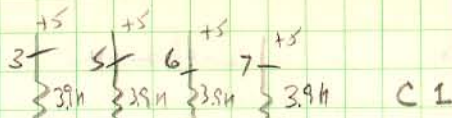 +5 +5 +5 +5
3 5 6 7
3.9K 3.9K 3.9K 3.9K C 1